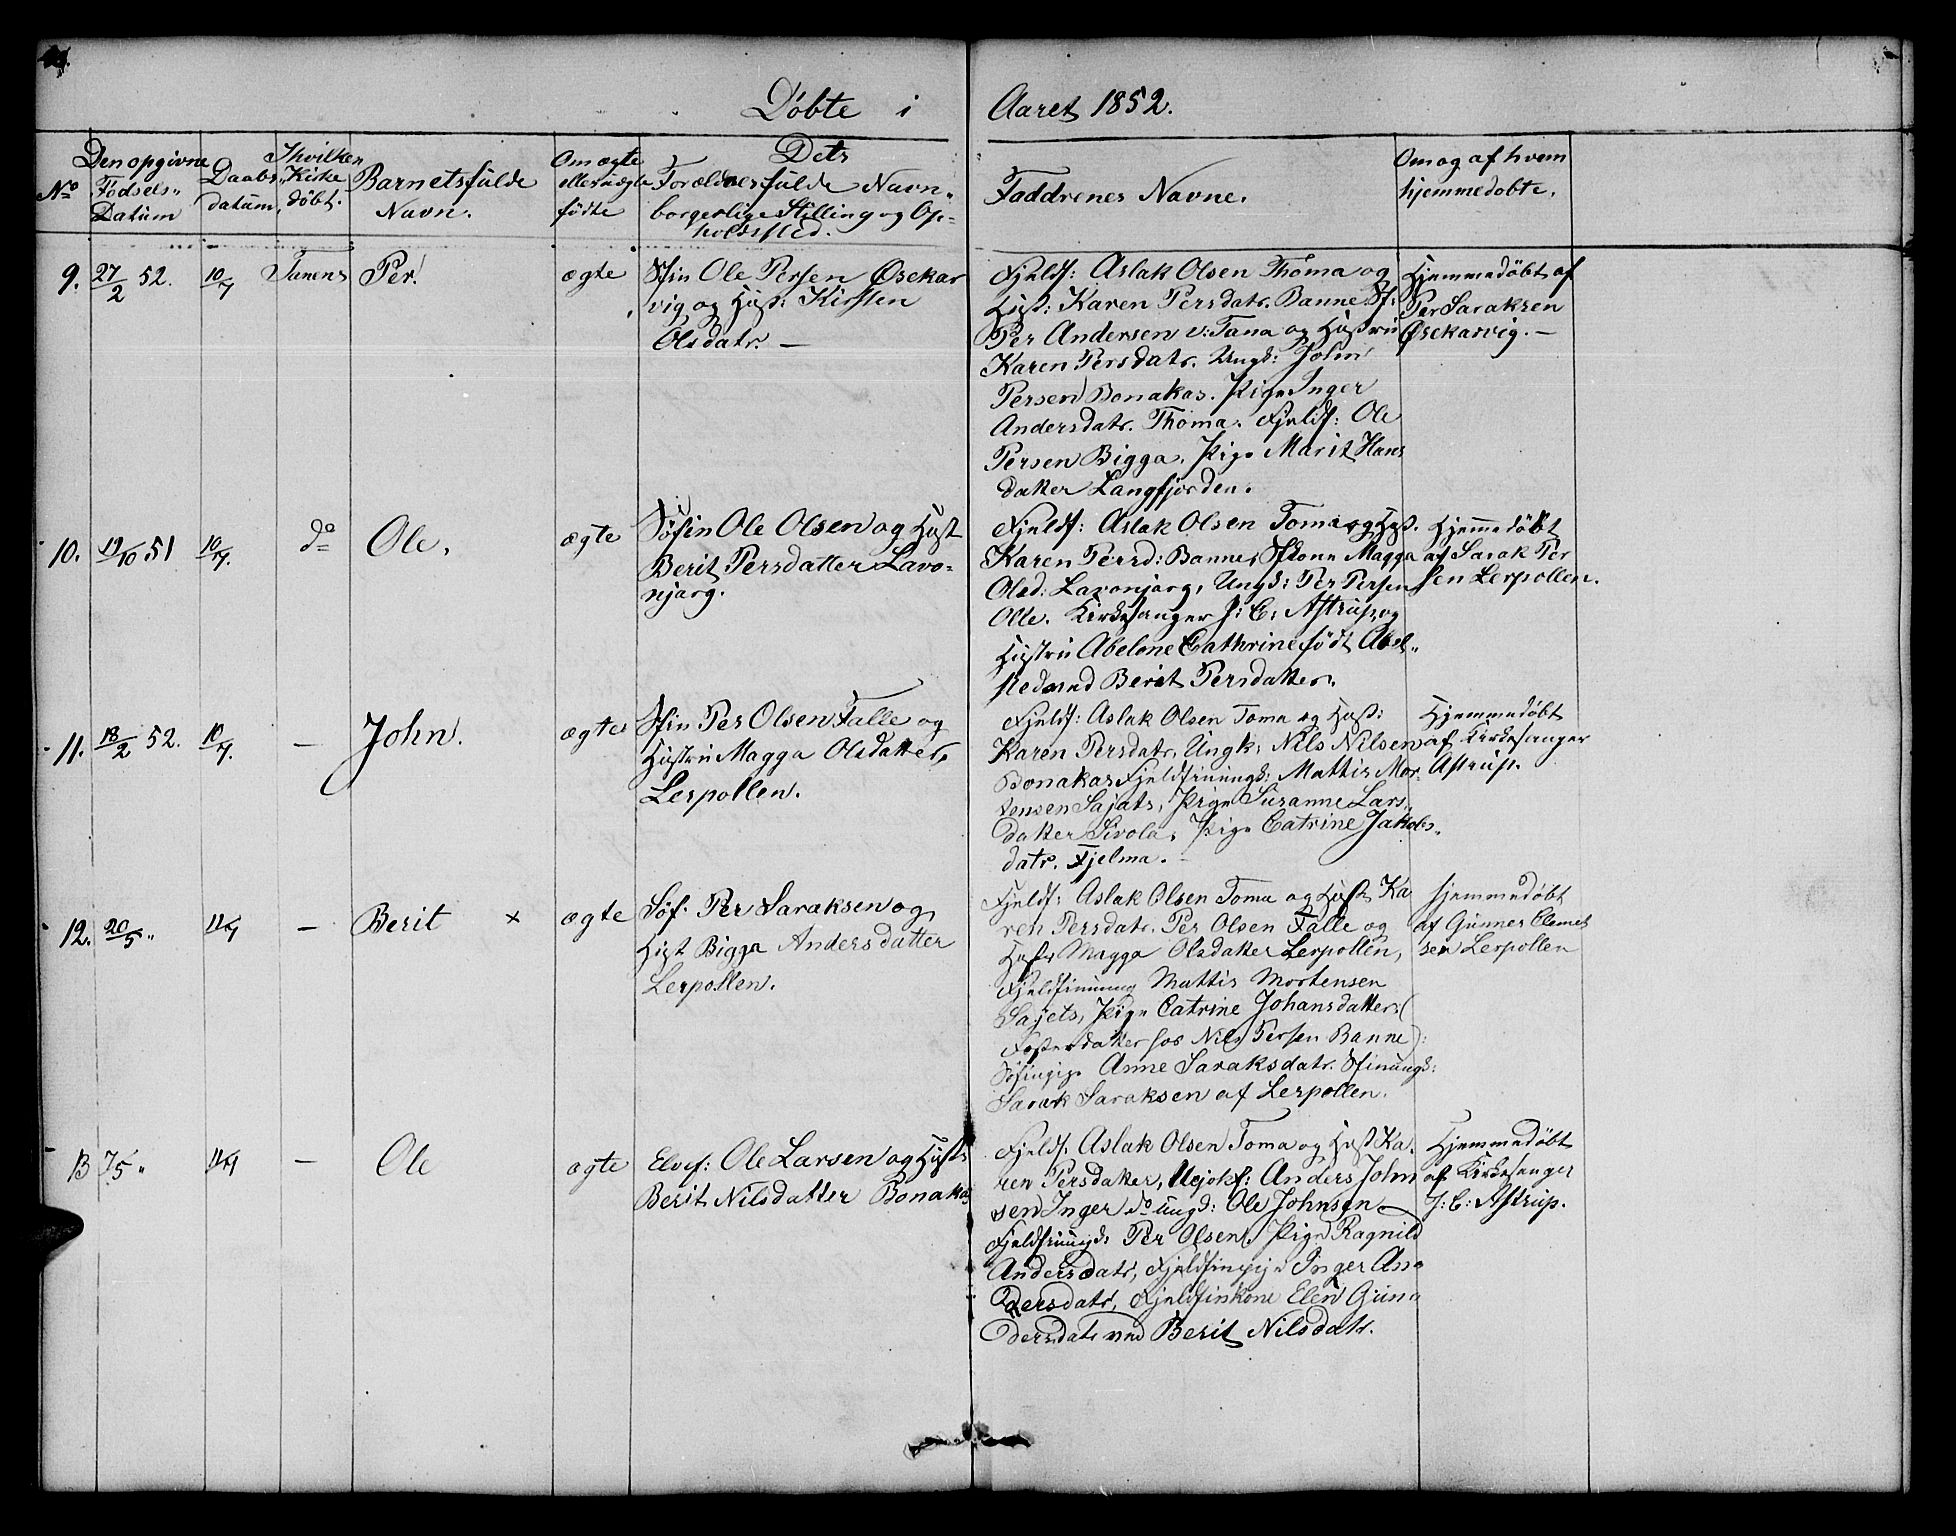 Døbte i Aaret 1852.
No
Den opgivne
Fødsels-
Datum
Daabs-
datum,
I hvilken
Kirke
døbt.
Barnets fulde
Navn.
Om ægte
eller uægte
fødte
Dets
Forældres fulde Navn,
borgerlige Stilling og Op-
holdssted.
Faddrenes Navne.
Om og af hvem
hjemmedøbte.
9. 27/2 52. 10/7 Tanens Per. ægte
Sfin Ole Persen Øsekar
vig og Hust: Kirsten
Olsdatr. —
Fjeldf: Aslak Olsen Thoma og
Hust: Karen Persdatr. Banne. Sf:
Per Andersen v: Tana og Hustru
Karen Persdatr. Ungd: John
Persen Bonakas. Pige Inger
Andersdatr. Thoma. Fjeldf: Ole
Persen Bigga. Pige Marit Hans
datter Langfjorden.
Hjemmedøbt af
Per Saraksen
Øsekarvig. —
10. 19/10 51 10/7. do Ole. ægte
Søfin Ole Olsen og Hust
Berit Persdatter Lavo-
njarg.
Fjeldf: Aslak Olsen Toma og Hust.
Karen Persd: Banne, Sfkone Magga
Olsd: Lavonjarg, Ungd: Per Persen
Olle. Kirkesanger J: C: Astrup og
Hustru Abelone Cathrine født Abel-
sted med Berit Persdatter.
Hjemmedøbt
af Sarak Per
sen Lerpollen.
11. 18/2 52. 10/7. — John. ægte
Sfin Per Olsen Falle og
Hustru Magga Olsdatter,
Lerpollen.
Fjeldf: Aslak Olsen Toma og Hust:
Karen Persdatr, Ungk: Nils Nilsen
Bonakas Fjeldfinungd: Mattis Mor-
tensen Sajets, Pige Susanne Lars-
datter Sirola, Pige Catrine Jakobs-
datr. Fjelma. —
Hjemmedøbt
af Kirkesanger
Astrup.
12. 20/5 " 11/7 — Berit × ægte
Søf: Per Saraksen og
Hust Bigga Andersdatter
Lerpollen.
Fjeldf: Aslak Olsen Toma og Hust Ka
ren Persdatr. Per Olsen Falle og
Hustr Magga Olsdatter Lerpollen,
Fjeldfinnung Mattis Mortensen
Sajets, Pige Catrine Johansdatter (
Fosterdatter hos Nils Persen Banne):
Søfinpige Anne Saraksdatr. Sfinungd:
Sarak Saraksen af Lerpollen.
Hjemmedøbt
af Gunner Clemet
sen Lerpollen
13 7/5 " 11/7 — Ole ægte
Elvef: Ole Larsen og Hust:
Berit Nilsdatter Bonakas
Fjeldf. Aslak Olsen Toma og Hust Ka-
ren Persdatter, Anders John
sen Inger do ungd: Ole Johnsen
Fjeldfinungd: Per Olsen, Pige Ragnild
Andersdatr, Fjeldfinpige Inger An-
dersdatr, Fjeldfinkone Elen Gun-
dersdatr med Berit Nilsdatr.
Hjemmedøbt
af Kirkesanger
J: C: Astrup.